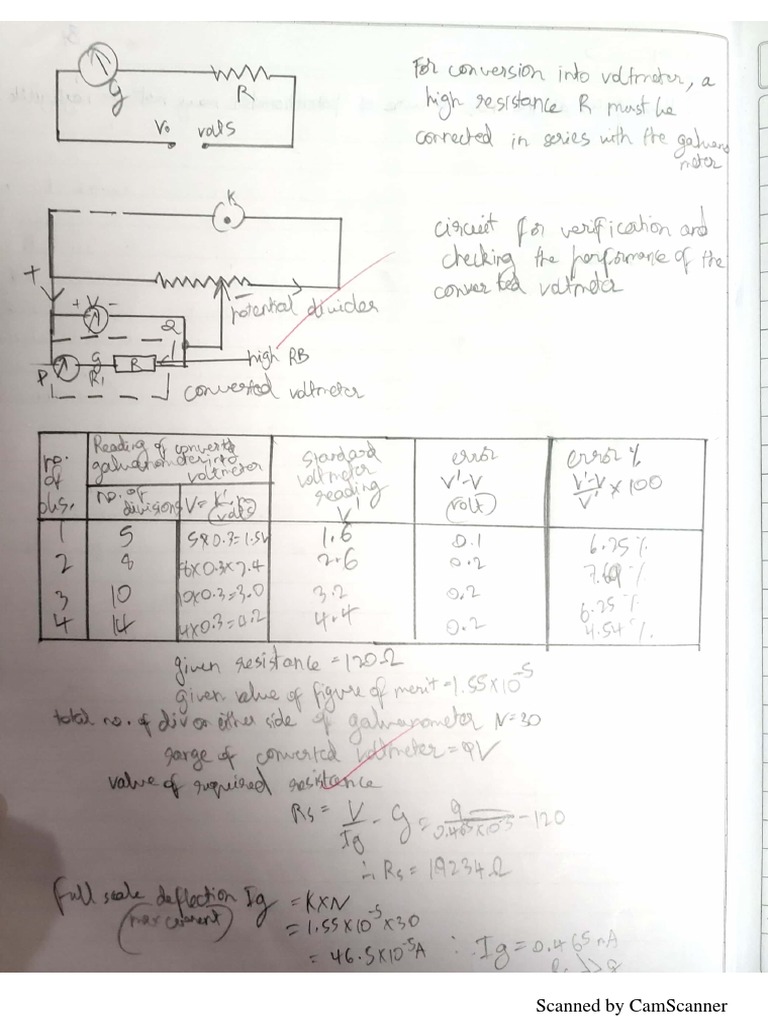 G
R
V₀ volts
For conversion into voltmeter, a
high resistance R must be
connected in series with the galvano
meter
K
circuit for verification and
checking the performance of the
converted voltmeter
+
+ V -
potential divider
Q
P G R
R₁
high RB
converted voltmeter
no. of obs. | Reading of converted galvanometer into voltmeter | Standard voltmeter reading V' | error V'-V (volt) | error % V'-V/V' × 100
no. of divisions | V = volts
1 | 5 | 5×0.3=1.5V | 1.6 | 0.1 | 6.25%
2 | 8 | 8×0.3×2.4 | 2.6 | 0.2 | 7.69%
3 | 10 | 10×0.3=3.0 | 3.2 | 0.2 | 6.25%
4 | 14 | 4×0.3=0.2 | 4.4 | 0.2 | 4.54%
given resistance = 120Ω
given value of figure of merit = 1.55×10⁻⁵
total no. of div on either side of galvanometer N=30
range of converted voltmeter = 9V
value of required resistance
Rs = V/Ig - G = 9/0.465×10⁻³ - 120
∴ Rs = 19234Ω
full scale deflection Ig = K×N
(max current)
= 1.55×10⁻⁵×30
= 46.5×10⁻⁵A ∴ Ig = 0.465 mA
Scanned by CamScanner